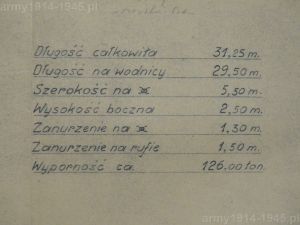 army1914-1945.pl
Długość całkowita 31,25 m.
Długość na wodnicy 29,50 m.
Szerokość na ж 5,50 m.
Wysokość boczna 2,50 m.
Zanurzenie na ж 1,30 m.
Zanurzenie na rufie 1,50 m.
Wyporność ca. 126,00 ton.
army1914-1945.pl